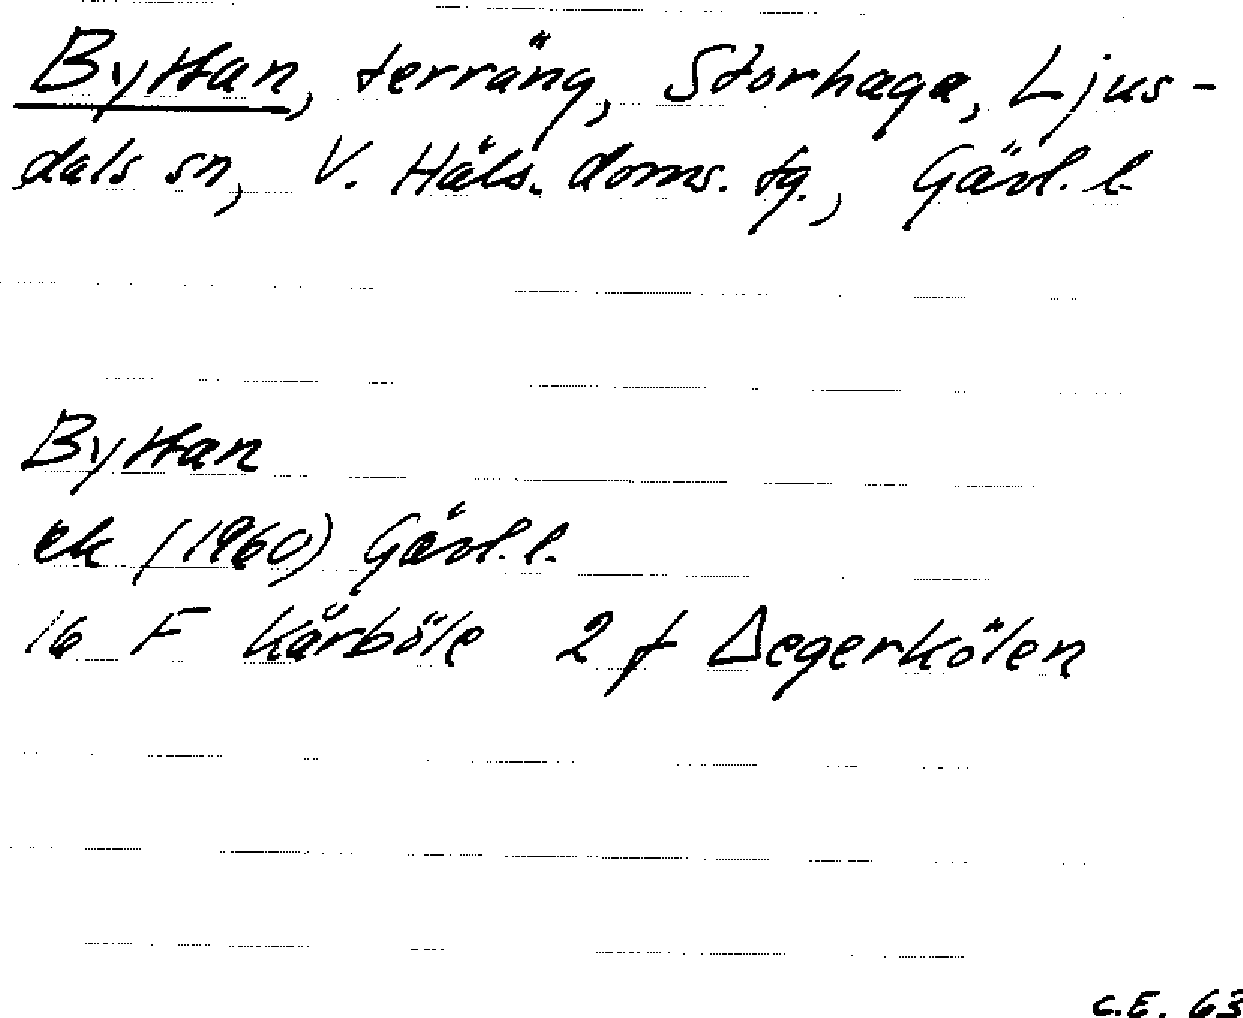 Byttan, terräng, Storhaga, Ljus-
dals sn, V. Häls. doms. tg., Gävl. l.
Byttan
ek (1960) Gävl. l.
16 F Kårböle 2 f Degerkölen
C.E. 63